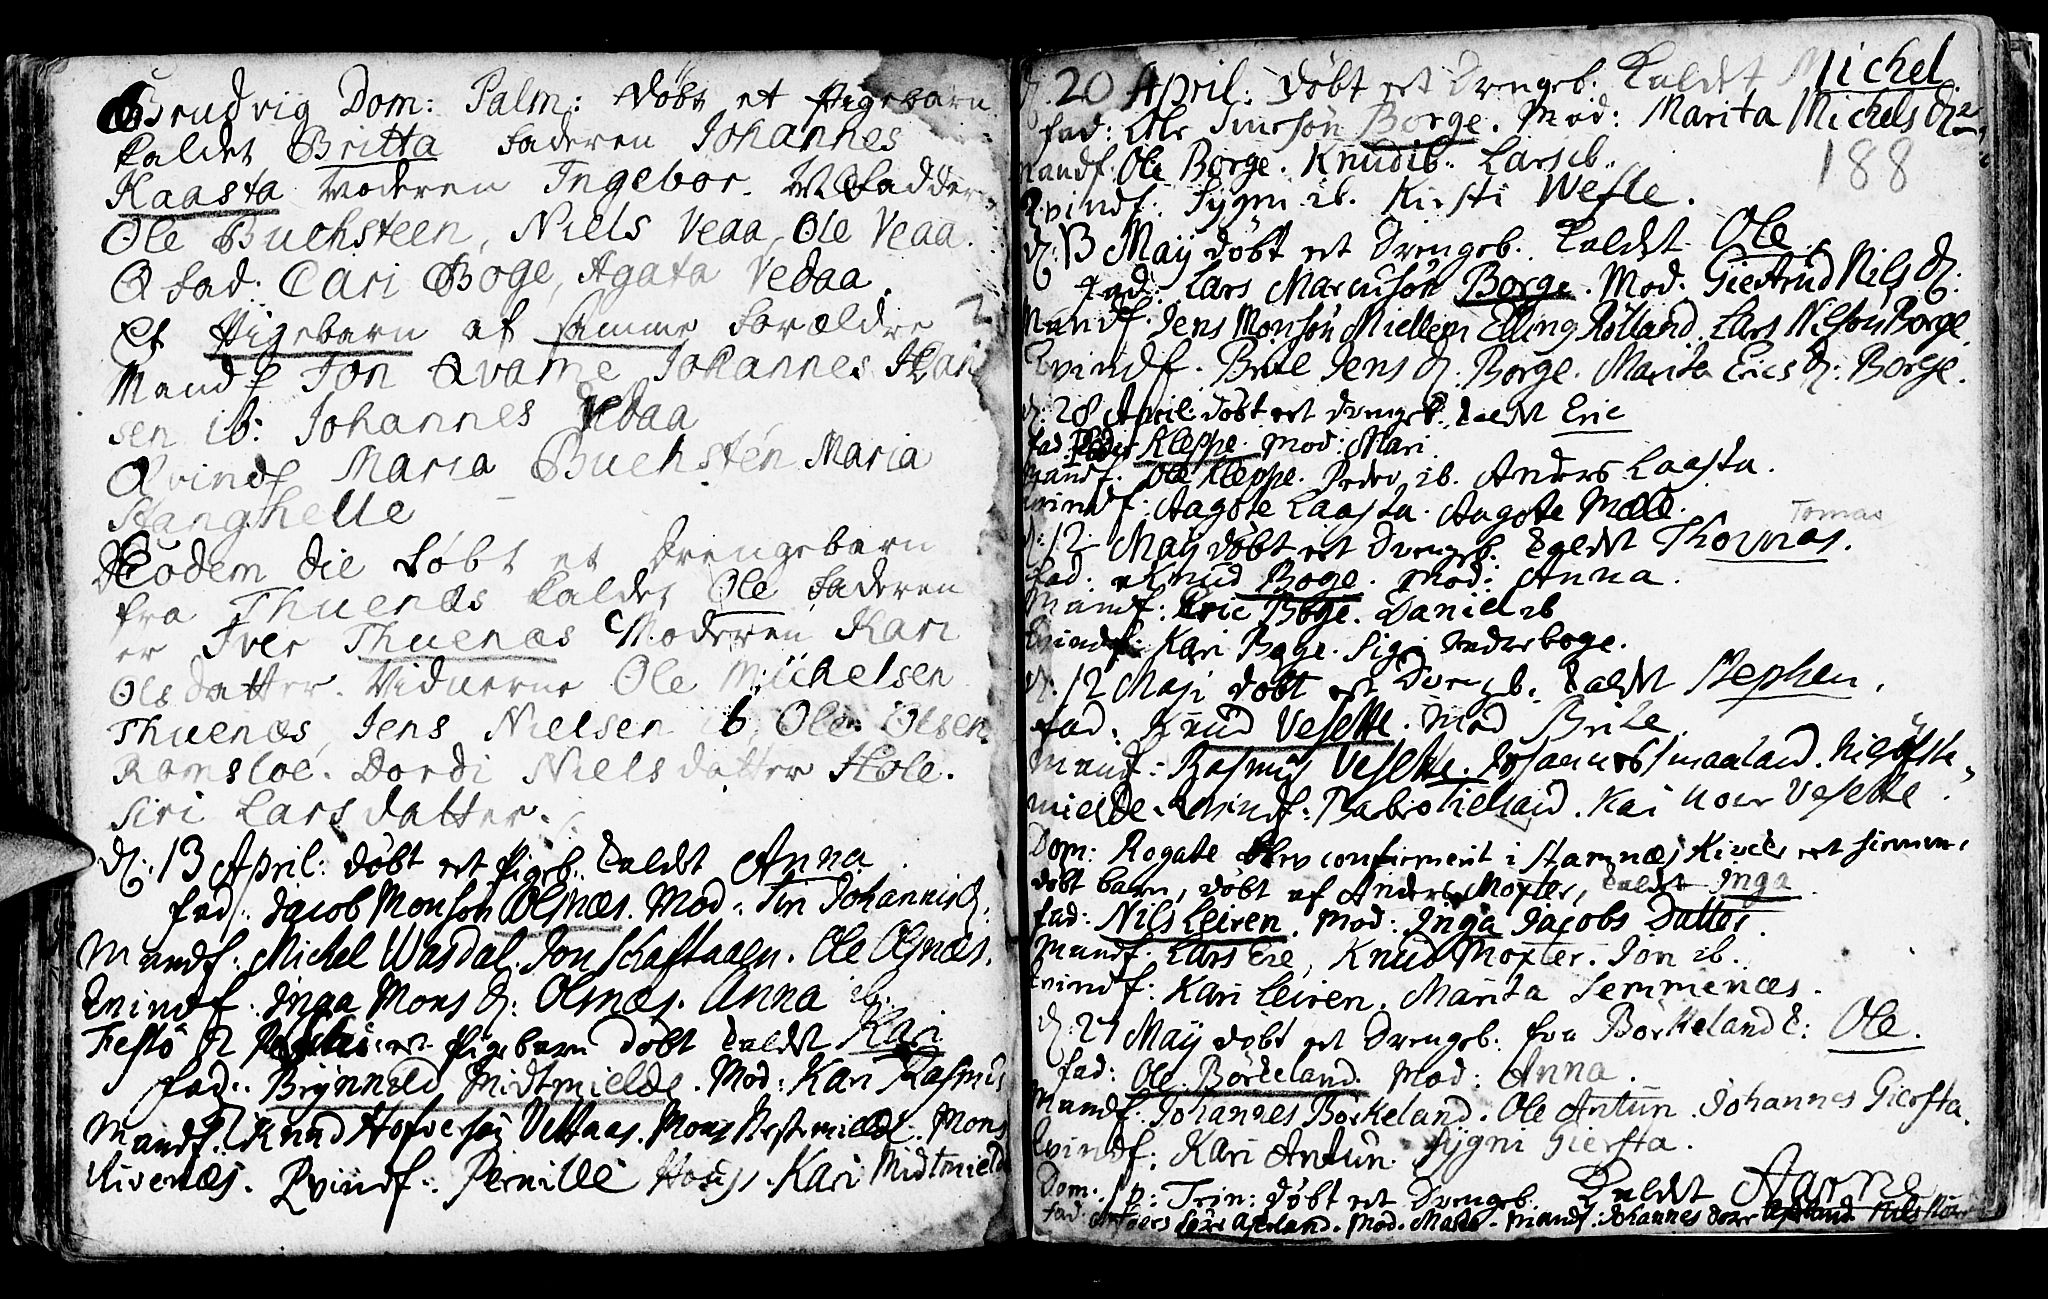 Brudvig Dom: Palm: døbt et Pigebarn
kaldet Britta Faderen Johannes
Kaasta Moderen Ingebor. M Fadder
Ole Buchsteen, Niels Veaa, Ole Veaa.
Q Fad: Cari Boge, Agata Vedaa.
Et Pigebarn af samme Forældre
Mandf Jon Qvame Johannes
sen ib: Johannes Vedaa
Qvindf Maria Buchsten Maria
Stanghelle
Eodem die døbt et drengebarn
fra Thuenæs kaldet Ole Faderen
er Iver Thuenæs Moderen Kari
Olsdatter. Viduerne Ole Michelsen
Thuenæs, Jens Nielsen ib, Ole Olsen
Ramsloe. Dordi Nielsdatter Hole.
Siri Larsdatter.
d: 13 April: døbt et Pigeb. kaldet Anna.
fad: Jacob Monsøn Olsnæs. Mod: Siri Johannis d:
Mandf: Michel Wasdal. Jon Skaftaaen. Ole Olsnæs.
Qvindf. Inga Mons d: Olsnæs. Anna ib.
Festo et Pigebarn døbt kaldet Kari
fad: Brynnild Midtmielde. Mod: Kari Rasmus
Mandf: Knud Vettaas. Mons Nestemielde. Mons
Rivenæs. Qvindf: Pernille Kari Midtmield
d. 20 April: døbt et Drengeb. kaldet Michel
fad: Ole Borge. Mod: Marita Michels d:
188
Mandf: Ole Borge. Knud ib. Lars ib.
Qvindf: Sygni ib. Kirsti Wefle.
d: 13 May døbt et Drengeb. kaldet Ole.
fad: Lars Marcusøn Borge. Mod. Giertrud Nils d:
Mandf. Jens Monsøn Miellem Elling Rølland. Lars Nilsøn Borge.
Qvindf. Brite Jens d. Borge. Marita Erics d: Borge.
d: 28 April: døbt et drengeb. kaldet Eric
fad: Kleppe. Mod: Mari.
Mandf: Ole Kleppe. Peder ib. Anders Laasta.
Qvindf: Aagote Laasta. Aagote Mæle.
Tomas
d: 12 May døbt et Drengeb. kaldet Thomas.
fad: Knud Boge. Mod: Anna.
Mandf: Eric Boge. Daniel ib
Qvindf: Kari Boge. Sigri Nedreboge.
d. 12 Maji døbt et Drengeb. kaldet Stephen.
fad: Knud Vesette. Mod Brite.
Mandf: Rasmus Vesette. Johannes Smaaland. Nils
mielde. Qvindf: Barbro Kari Vesette.
Dom: Rogate blev confirmerit i Stamnæs Kircke et hiemme
døbt barn, døbt af Anders Moxter, kaldet Inga.
fad: Nils Leiren. Mod: Inga Jacobs Datter.
Mandf. Lars Eie, Knud Moxter. Jon ib.
Qvindf: Kari Leiren. Marita Semmenæs.
d: 27 May døbt et Drengeb. fra Børkeland k: Ole.
fad: Ole Børkeland. Mod: Anna.
Mandf. Johannes Børkeland. Ole Antun. Johannes Giersta.
Qvindf: Kari Antun Sygni Giersta.
Dom. Trin: døbt et Drengeb. kaldet Aarne
fad. Mod. Marta. Mandf. Johannes